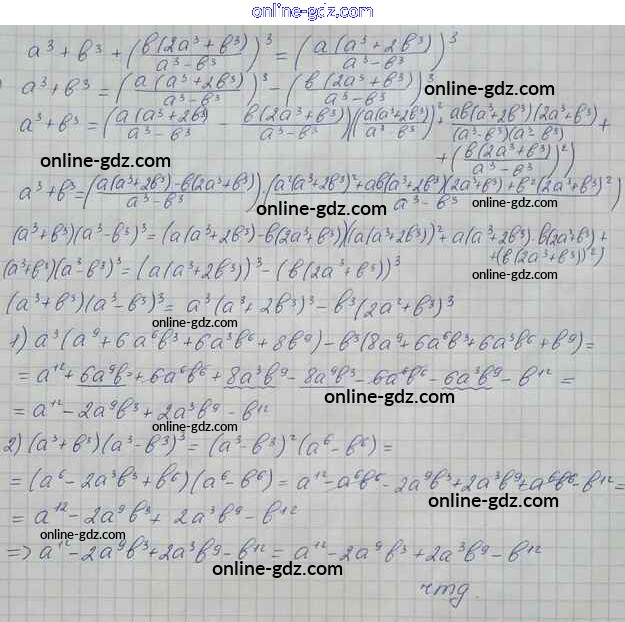 online-gdz.com
a³ + b³ + (b(2a³ + b³)/a³ - b³)³ = (a(a³ + 2b³)/a³ - b³)³
a³ + b³ = (a(a³ + 2b³)/a³ - b³)³ - (b(2a³ + b³)/a³ - b³)³
online-gdz.com
a³ + b³ = (a(a³ + 2b³)/a³ - b³ - b(2a³ + b³)/a³ - b³)((a(a³ + 2b³)/a³ - b³)² + ab(a³ + 2b³)(2a³ + b³)/(a³ - b³)(a³ - b³) +
+ (b(2a³ + b³)/a³ - b³)²)
online-gdz.com
a³ + b³ = (a(a³ + 2b³) - b(2a³ + b³)/a³ - b³)·(a²(a³ + 2b³)² + ab(a³ + 2b³)(2a³ + b³) + b²(2a³ + b³)²/a³ - b³)
online-gdz.com
online-gdz.com
(a³ + b³)(a³ - b³)³ = (a(a³ + 2b³) - b(2a³ + b³))((a(a³ + 2b³))² + a(a³ + 2b³)·b(2a³ + b³) +
+ (b(2a³ + b³))²)
online-gdz.com
(a³ + b³)(a³ - b³)³ = (a(a³ + 2b³))³ - (b(2a³ + b³))³
(a³ + b³)(a³ - b³)³ = a³(a³ + 2b³)³ - b³(2a² + b³)³
online-gdz.com
1) a³(a⁹ + 6a⁶b³ + 6a³b⁶ + 8b⁹) - b³(8a⁹ + 6a⁶b³ + 6a³b⁶ + b⁹) =
online-gdz.com
= a¹² + 6a⁹b³ + 6a⁶b⁶ + 8a³b⁹ - 8a⁹b³ - 6a⁶b⁶ - 6a³b⁹ - b¹² =
= a¹² - 2a⁹b³ + 2a³b⁹ - b¹²
online-gdz.com
2) (a³ + b³)(a³ - b³)³ = (a³ - b³)²(a⁶ - b⁶) =
= (a⁶ - 2a³b³ + b⁶)(a⁶ - b⁶) = a¹² - a⁶b⁶ - 2a⁹b³ + 2a³b⁹ + a⁶b⁶ - b¹² =
online-gdz.com
= a¹² - 2a⁹b³ + 2a³b⁹ - b¹²
online-gdz.com
=> a¹² - 2a⁹b³ + 2a³b⁹ - b¹² = a¹² - 2a⁹b³ + 2a³b⁹ - b¹²
online-gdz.com
чтд.